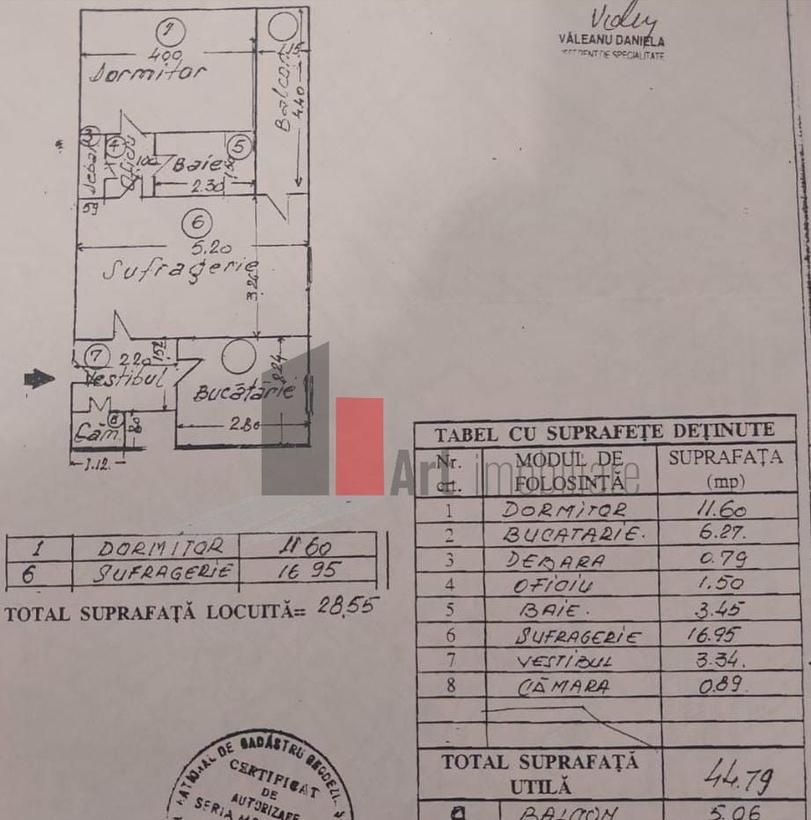 VĂLEANU DANIELA
1
400
Dormitor
Balcon
1.15
4.40
3
Debara
4
Oficiu
100
Baie
5
2.30
59
6
5.20
Sufragerie
3.26
7
2.20
152
Vestibul
Bucătărie
2.24
2.80
Căm.
8
80
1.12.
Art imobiliare
1 DORMITOR 11.60
6 SUFRAGERIE 16 95
TOTAL SUPRAFAȚĂ LOCUITĂ= 28,55
TABEL CU SUPRAFEȚE DEȚINUTE
Nr. crt. MODUL DE FOLOSINȚĂ SUPRAFAȚA (mp)
1 DORMITOR 11.60
2 BUCATARIE. 6.27.
3 DEBARA 0.79
4 OFICIU 1.50
5 BAIE. 3.45
6 SUFRAGERIE 16.95
7 VESTIBUL 3.34.
8 CĂMARA 0.89.
TOTAL SUPRAFAȚĂ UTILĂ 44.79
9 BALCON 5.06
NAȚIONAL DE CADASTRU GEODEZIE
CERTIFICAT
DE
AUTORIZARE
SERIA